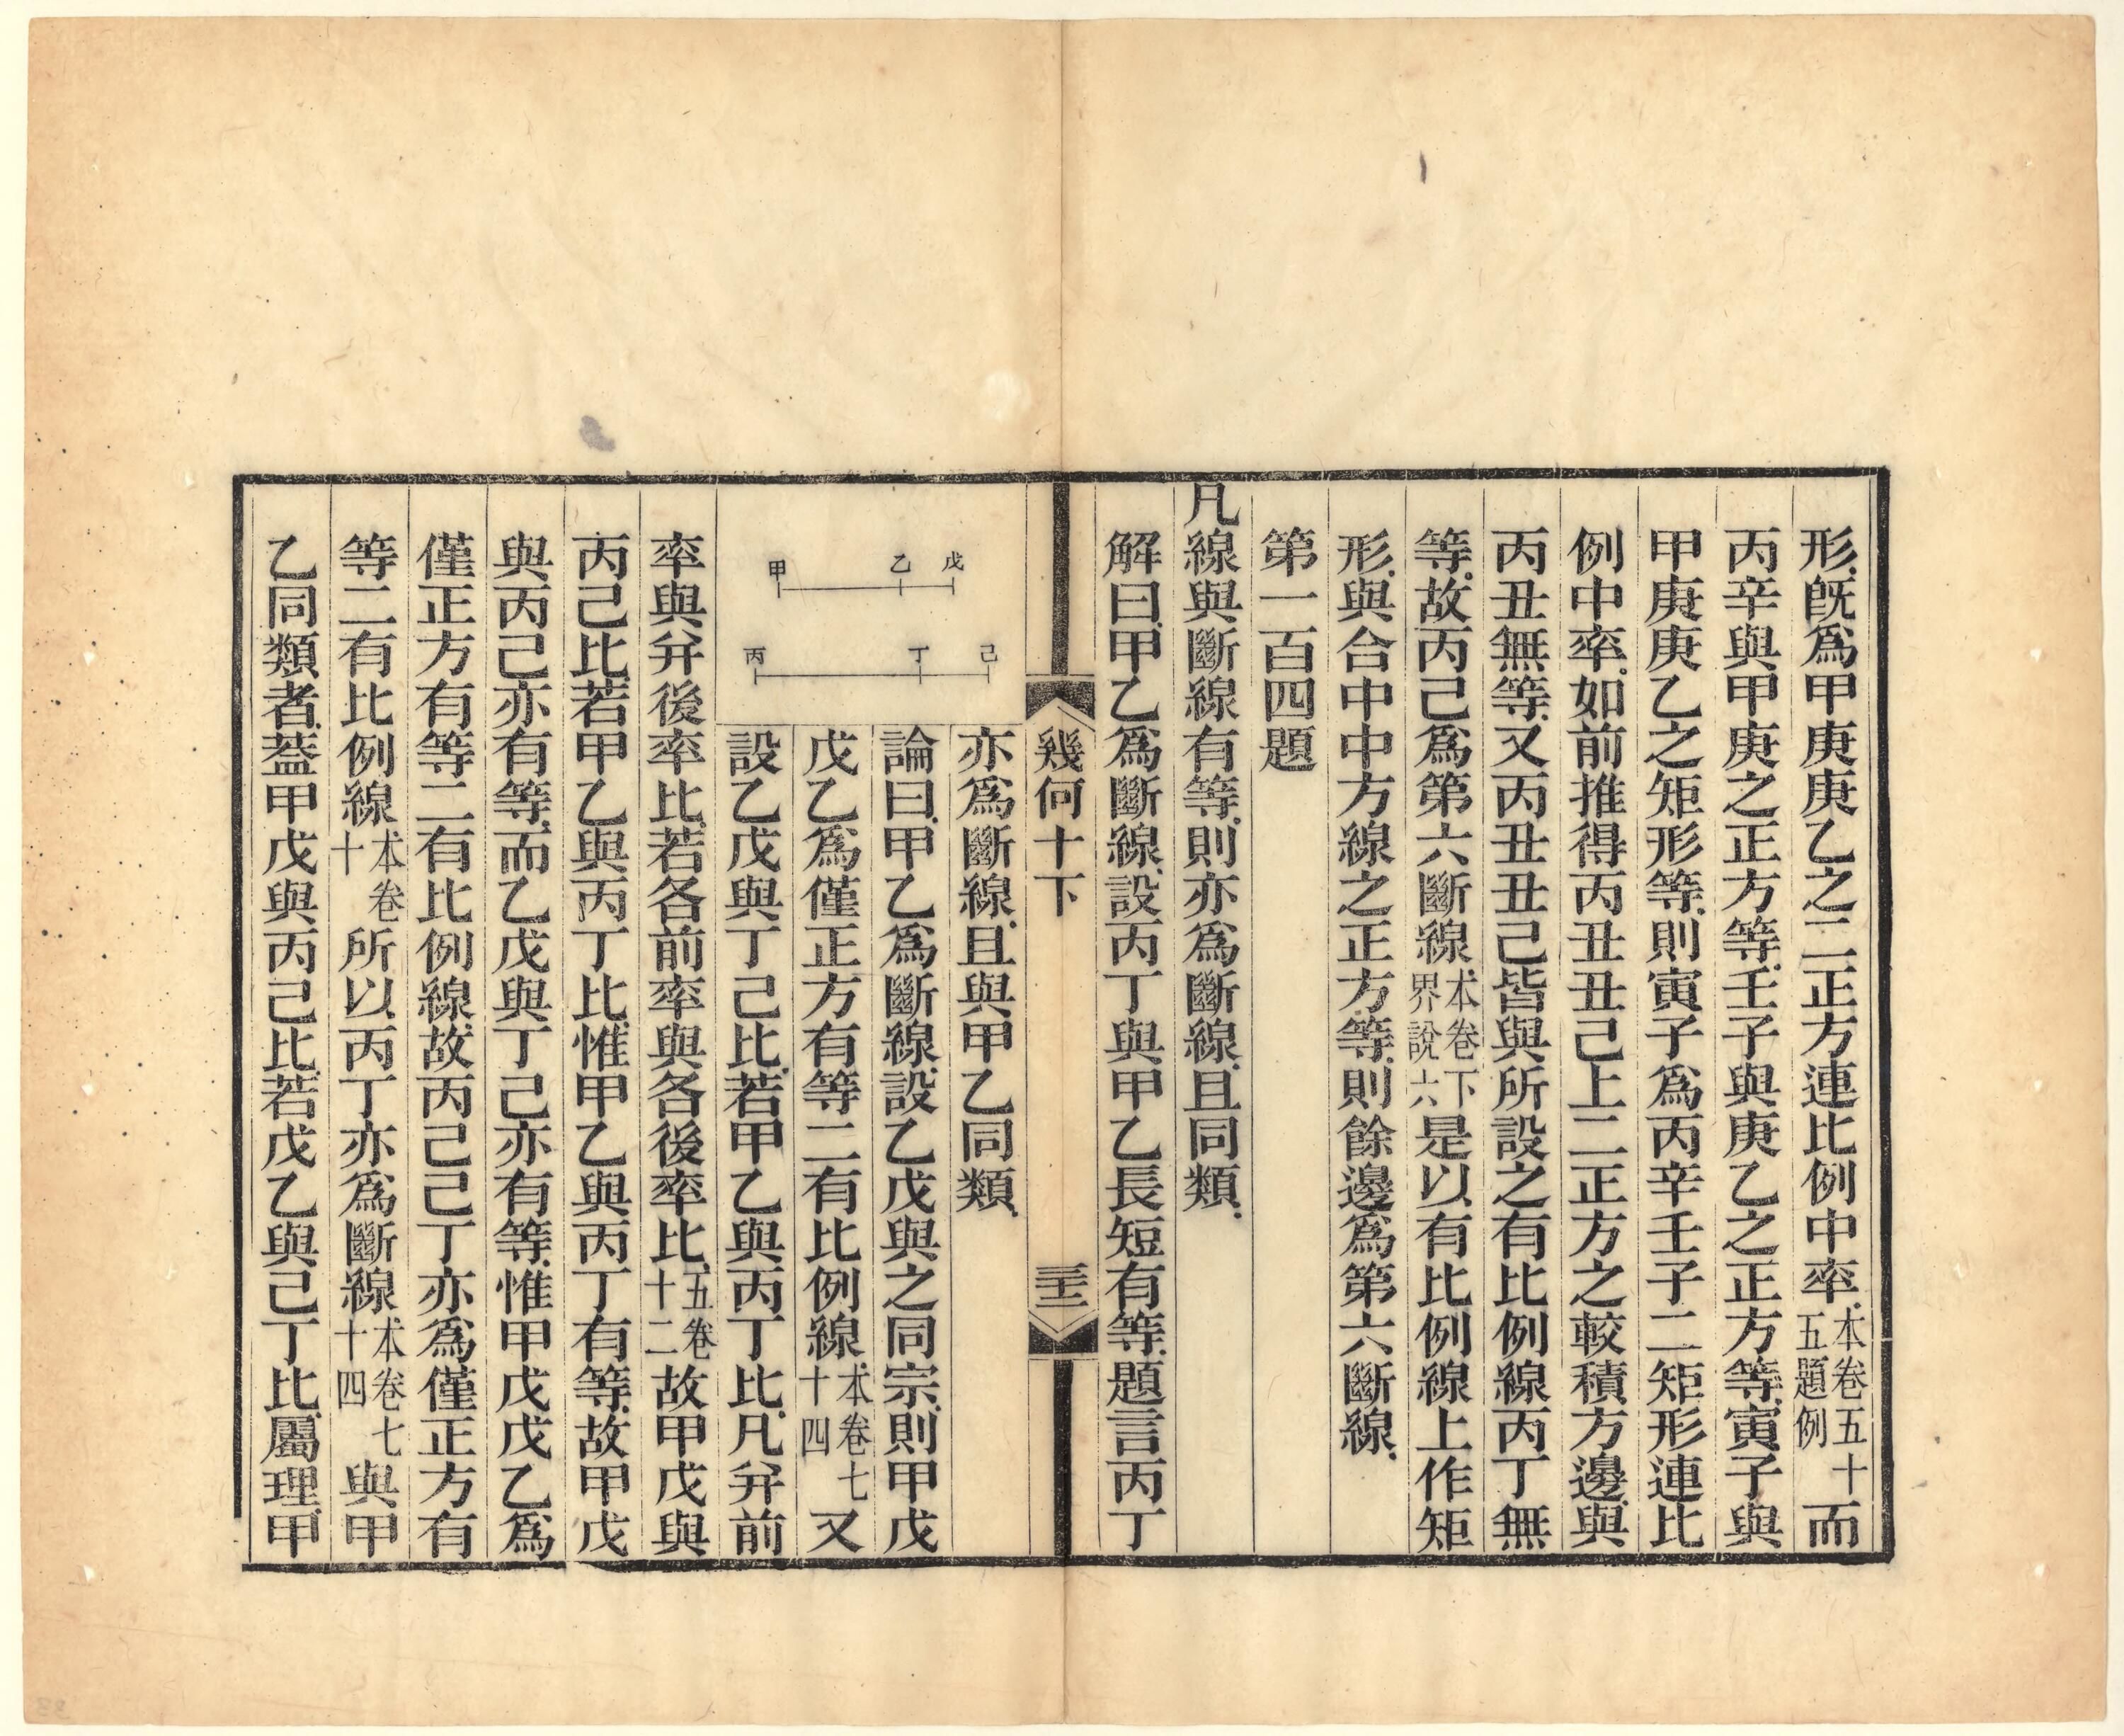 形.旣爲甲庚庚乙之二正方連比例中率.本卷五十五題例而
丙辛與甲庚之正方等.壬子與庚乙之正方等.寅子與
甲庚庚乙之矩形等.則寅子爲丙辛壬子二矩形連比
例中率.如前推得丙丑丑己上二正方之較積方邊.與
丙丑無等.又丙丑丑己皆與所設之有比例線丙丁無
等.故丙己爲第六斷線本卷下界說六是以有比例線上作矩
形.與合中中方線之正方等.則餘邊爲第六斷線.
第一百四題
凡線與斷線有等.則亦爲斷線.且同類.
解曰.甲乙爲斷線.設丙丁與甲乙長短有等.題言丙丁
幾何十下
三十三
亦爲斷線.且與甲乙同類.
論曰.甲乙爲斷線.設乙戊與之同宗.則甲戊
戊乙爲僅正方有等二有比例線.本卷七十四又
設乙戊與丁己比.若甲乙與丙丁比.凡并前
甲 乙 戊
丙 丁 己
率與并後率比.若各前率與各後率比.五卷十二故甲戊與
丙己比若甲乙與丙丁比.惟甲乙與丙丁有等.故甲戊
與丙己亦有等.而乙戊與丁己亦有等.惟甲戊戊乙爲
僅正方有等二有比例線.故丙己己丁亦爲僅正方有
等二有比例線本卷十所以丙丁亦爲斷線本卷七十四與甲
乙同類者.蓋甲戊與丙己比.若戊乙與己丁比.屬理.甲